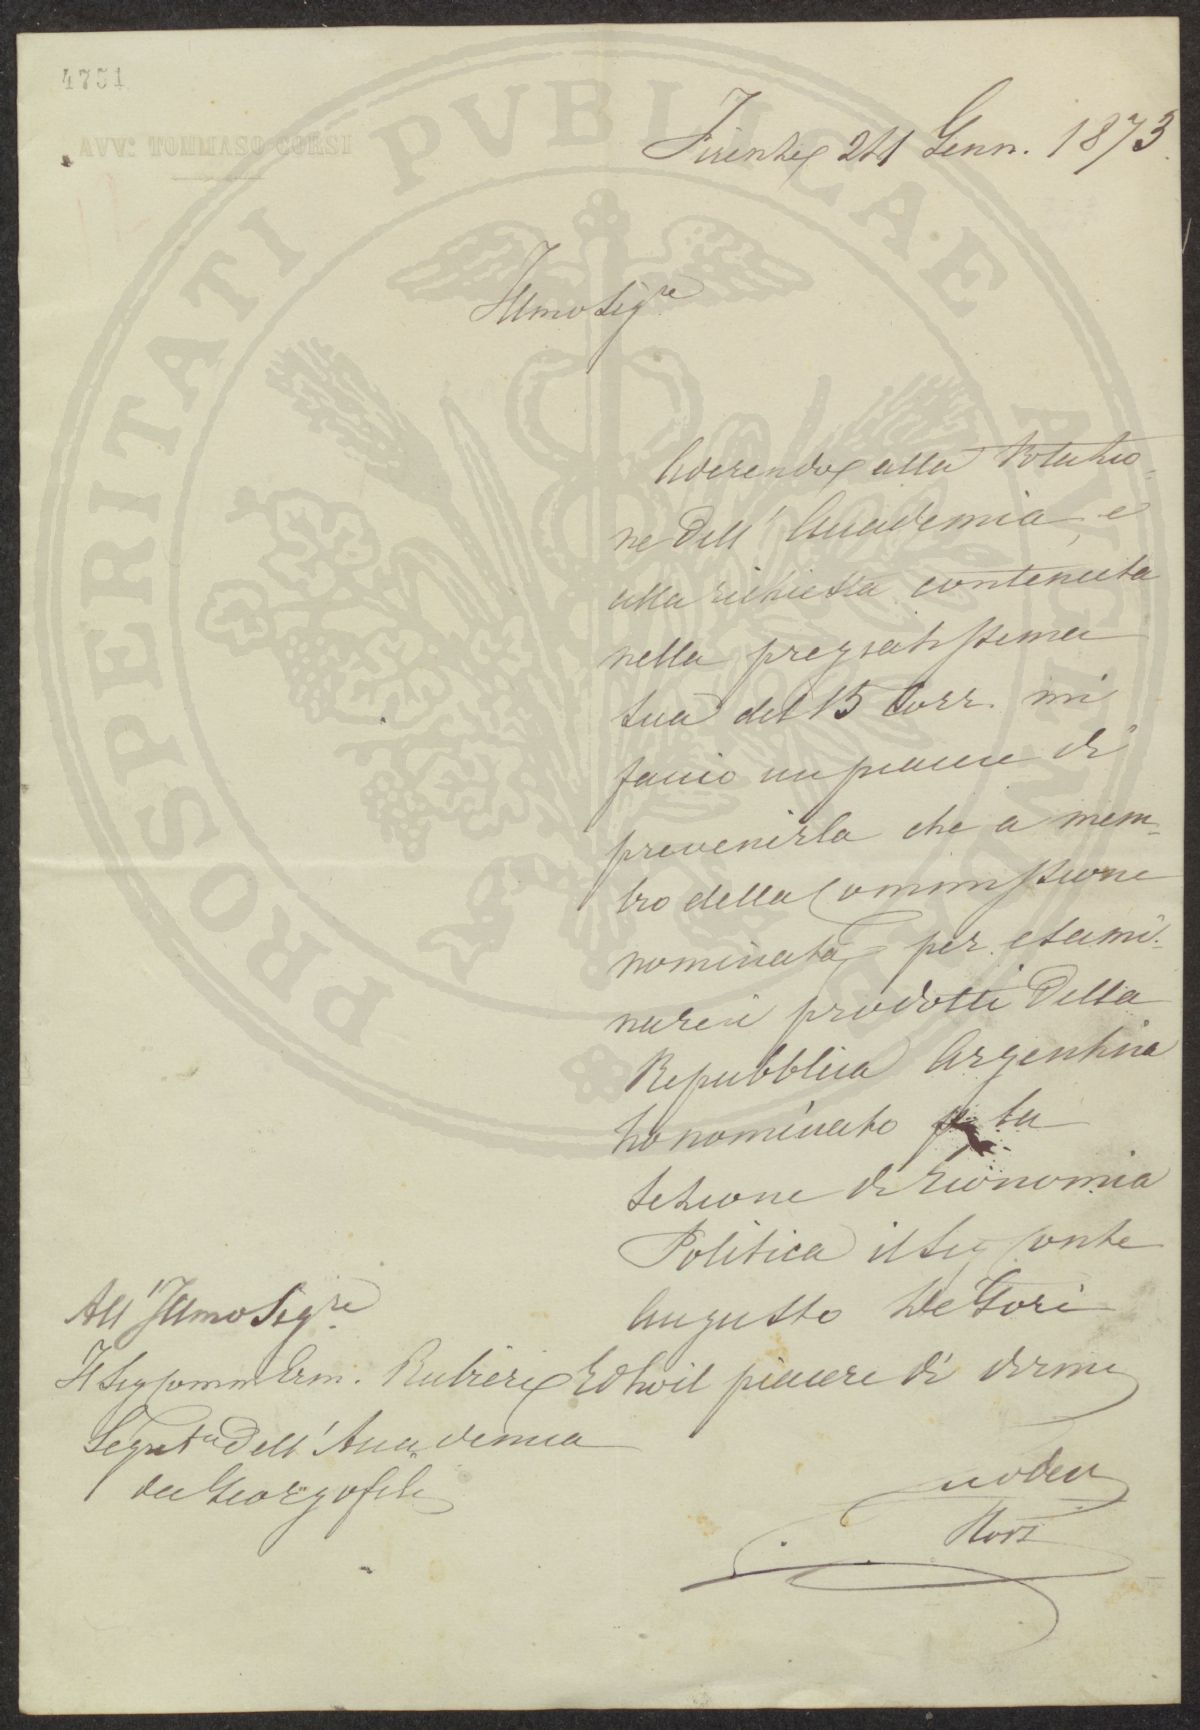 4751
AVV: TOMMASO CORSI
Firenze 24 Genn. 1873.
Illmo Sigre
Aderendo alla Votazio-
ne dell' Accademia, e
alla richiesta contenuta
nella pregiatissima
sua del 15 Corr. mi
faccio un piacere di
prevenirla che a mem-
bro della Commissione
nominata per esami-
nare i prodotti della
Repubblica Argentina
ho nominato p la
Sezione di Economia
Politica il Sig Conte
Augusto De Gori
Ed ho il piacere di dirmi
All' Illmo Sigre
Il Sig Comm Erm. Rubieri
Segret.o dell' Accademia
dei Georgofili
PROSPERITATI PVBLICAE AVGENDAE